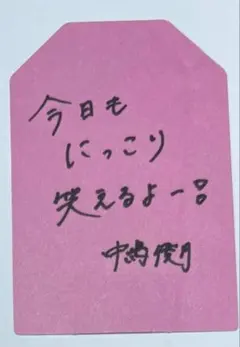 今日も
にっこり
笑えるよー!
中嶋